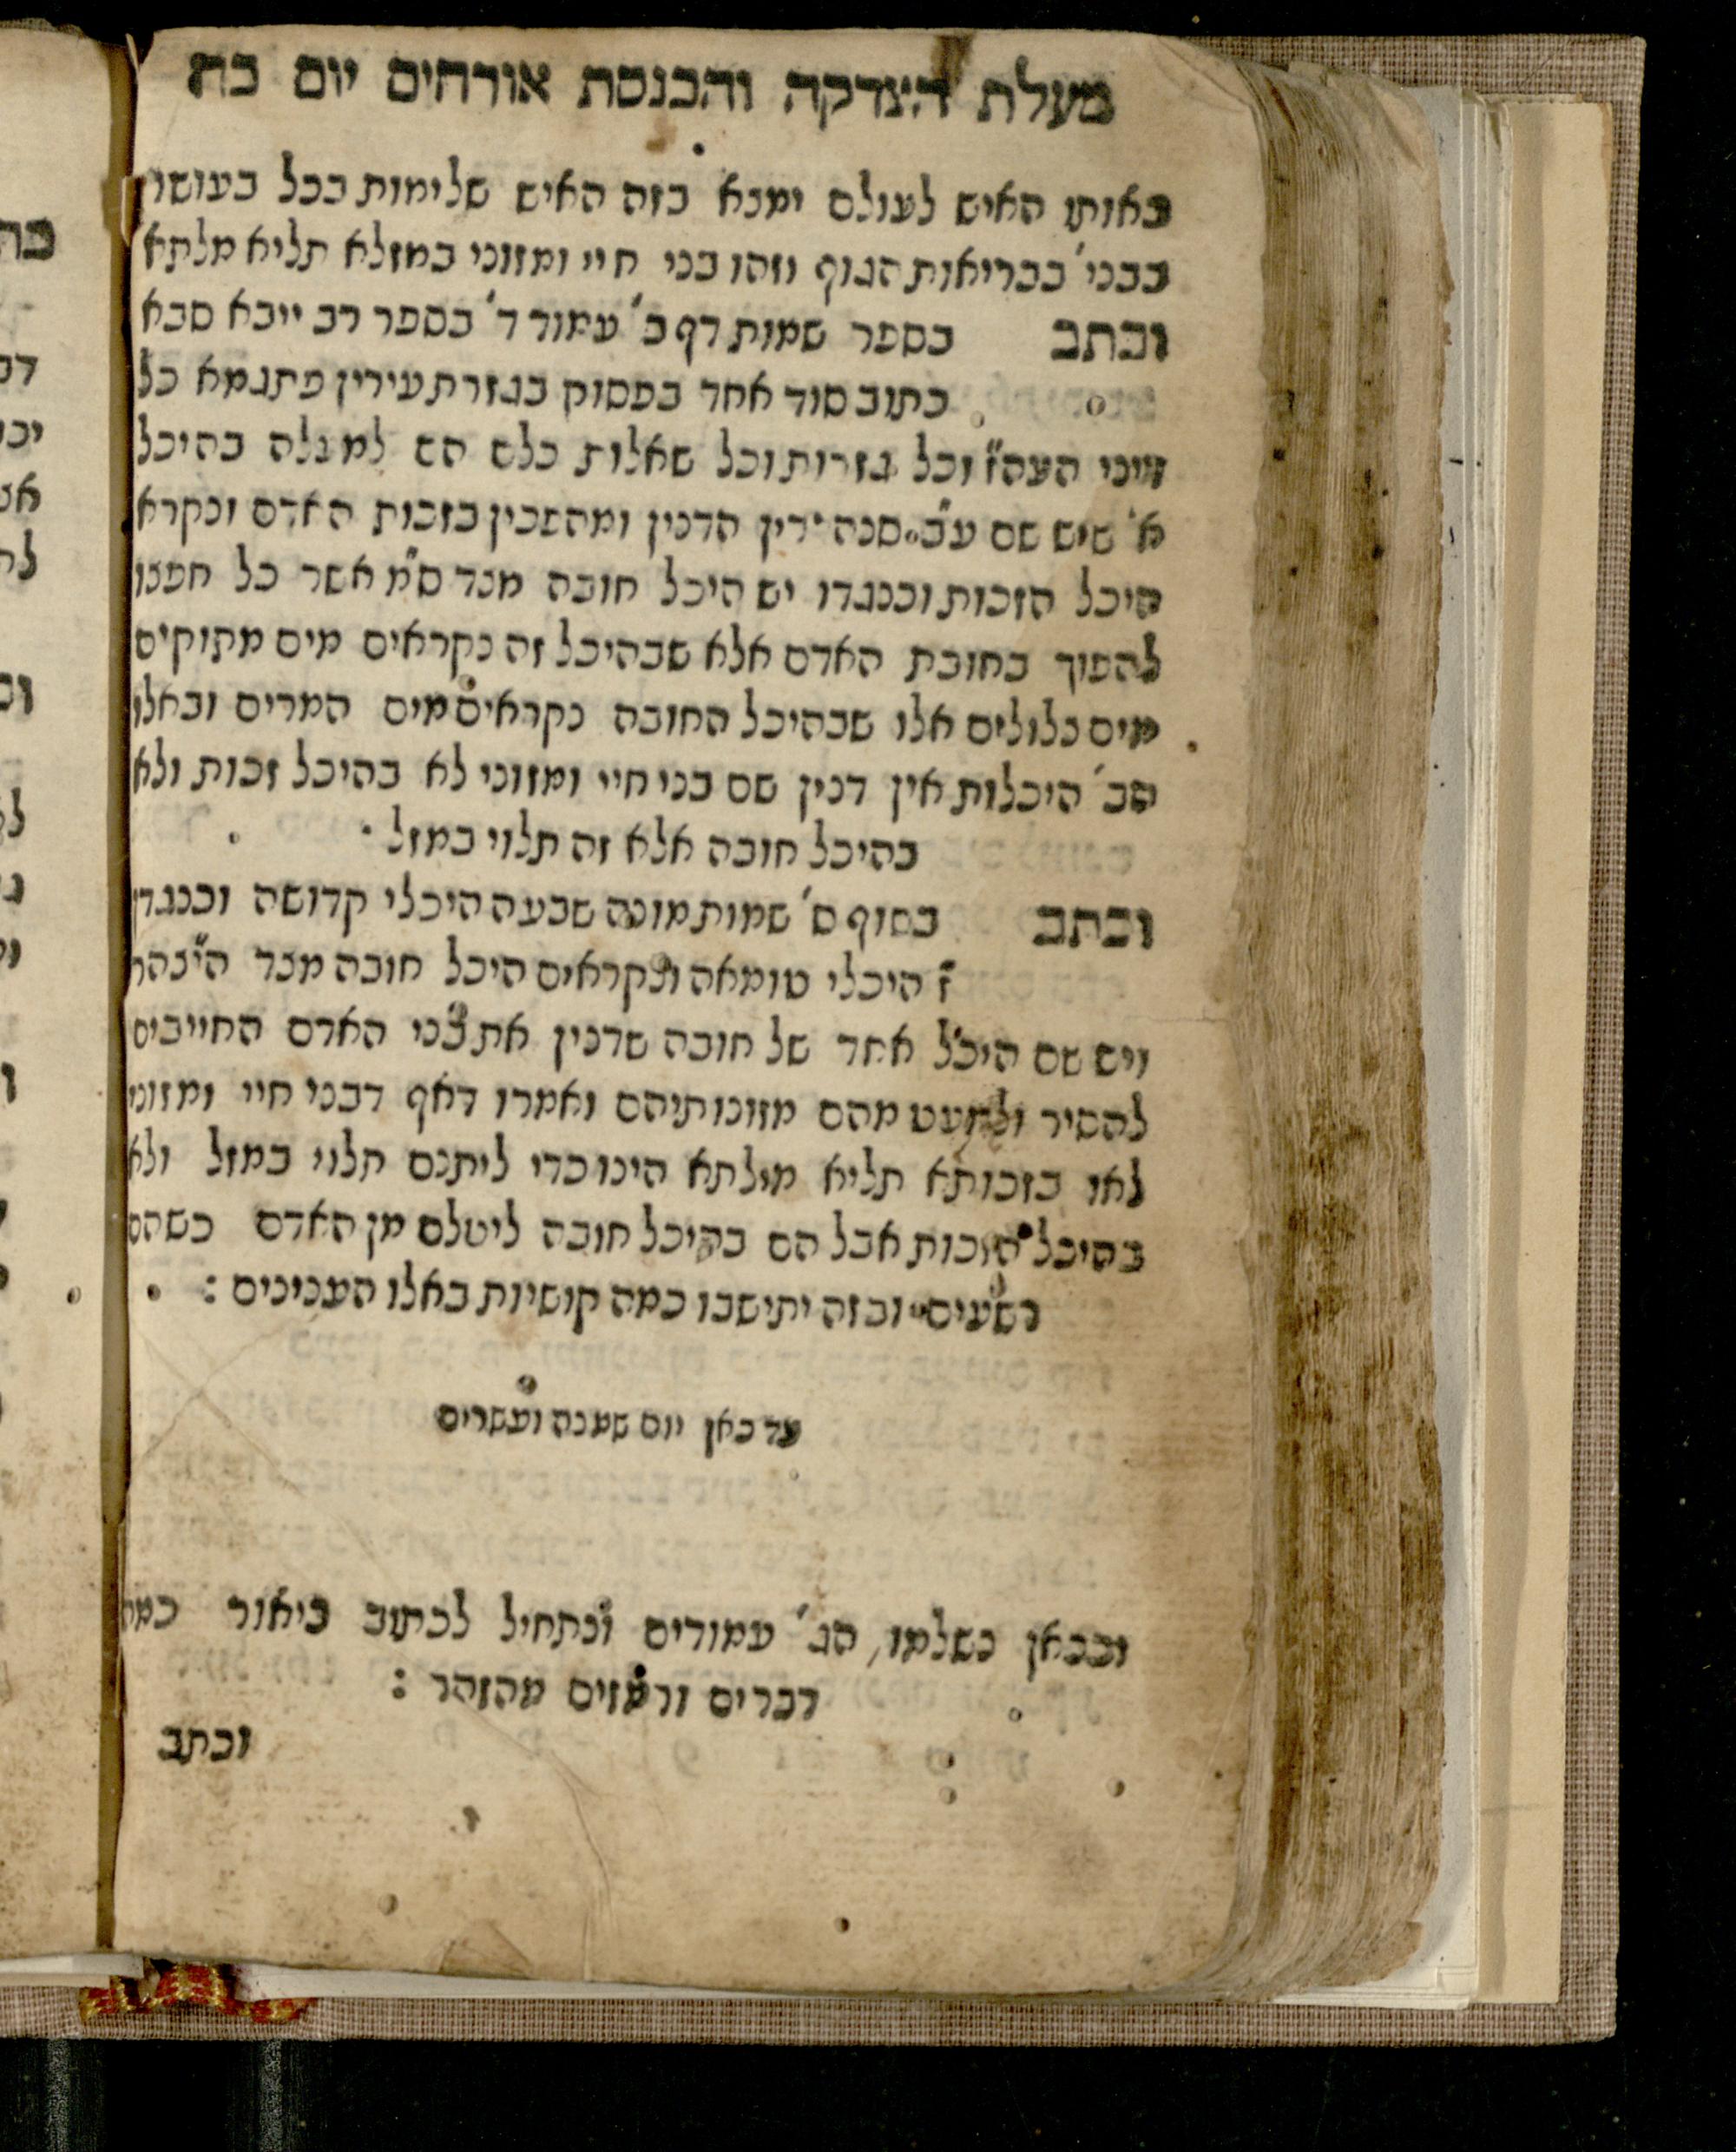 מעלת הצדקה והכנסת אורחים יום כח
באותו האיש לעולם ימנא בזה האיש שלימות בכל בעושר
בבני' בבריאות הגוף וזהו בני חיי ומזוני במזלא תליא מלתא
וכתב בספר שמות דף ב' עמוד ד' בספר רב ייבא סבא
כתוב סוד אחד בפסוק בגזרת עירין פתגמא כל
דיני העה"ז וכל גזרות וכל שאלות כלם הם למעלה בהיכל
א' שיש שם ע"ב סנהדרין הדנין ומהפכין בזכות האדם ונקרא
היכל הזכות וכנגדו יש היכל חובה מצד ס"מ אשר כל חפצו
להפוך בחובת האדם אלא שבהיכל זה נקראים מים מתוקים
מים צלולים אלו שבהיכל החובה נקראים מים המרים ובאלו
הב' היכלות אין דנין שם בני חיי ומזוני לא בהיכל זכות ולא
בהיכל חובה אלא זה תלוי במזל
וכתב בסוף ס' שמות מונה שבעה היכלי קדושה וכנגדן
ז' היכלי טומאה ונקראים היכל חובה מצד היצהר
ויש שם היכל אחד של חובה שדנין את בני האדם החייבים
להסיר ולמעט מהם מזונותיהם ואמרו דאף דבני חיי ומזוני
לאו בזכותא תליא מילתא היינו כדי ליתנם תלוי במזל ולא
בהיכל הזכות אבל הם בהיכל חובה ליטלם מן האדם כשהם
רשעים ובזה יתישבו כמה קושיות באלו העניינים :
עד כאן יום שמנה ועשרים
ובכאן נשלמו הג' עמודים ונתחיל לכתוב ביאור כמה
דברים ורמזים מהזהר :
וכתב